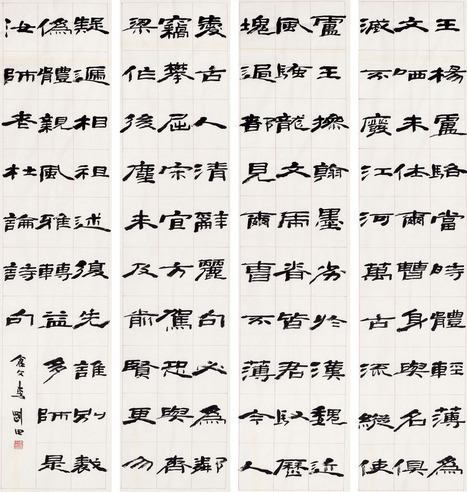 王楊盧駱當時體輕薄為
文哂未休爾曹身與名俱
滅不廢江河萬古流縱使
盧王操翰墨劣於漢魏近
風騷龍文虎脊皆君馭歷
塊過都見爾曹不薄今人
愛古人清辭麗句必為鄰
竊攀屈宋宜方駕恐與齊
梁作後塵未及前賢更勿
疑遞相祖述復先誰別裁
偽體親風雅轉益多師是
汝師老杜論詩句